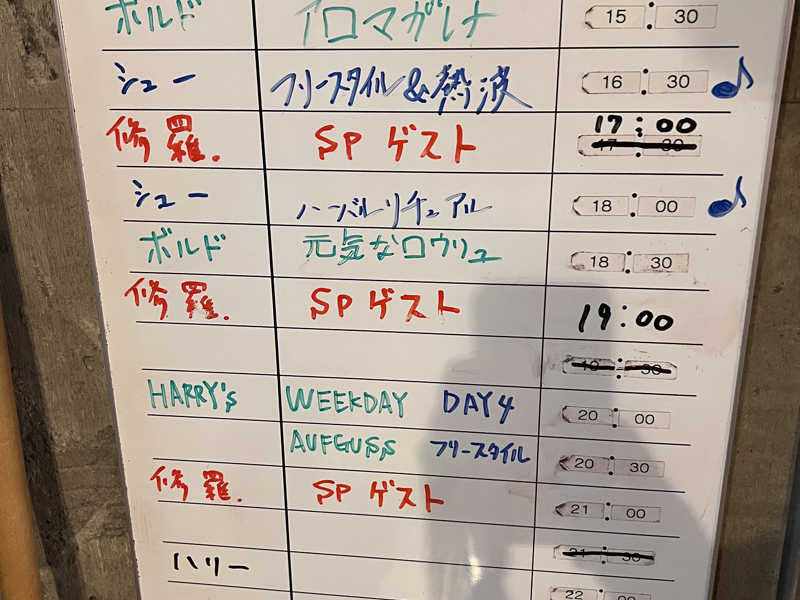 ボルド アロマガレナ 15:30
シュー フリースタイル&熱波 16:30
修羅. SP ゲスト 17:00
17:30
シュー ハーバルリチュアル 18:00
ボルド 元気なロウリュ 18:30
修羅. SP ゲスト 19:00
19:30
HARRY's WEEKDAY DAY4 20:00
AUFGUSS フリースタイル 20:30
修羅. SP ゲスト 21:00
21:30
ハリー 22:00